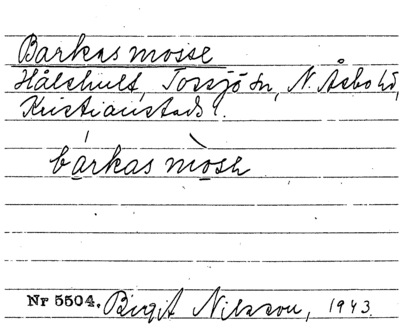 Barkas mosse
Hålshult, Tossjö sn, N. Åsbo hd,
Kristianstads l.
bárkas mòsɛ
Nr 5504. Birgit Nilsson, 1943.